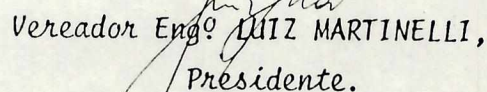 Vereador Engº LUIZ MARTINELLI,
Presidente.